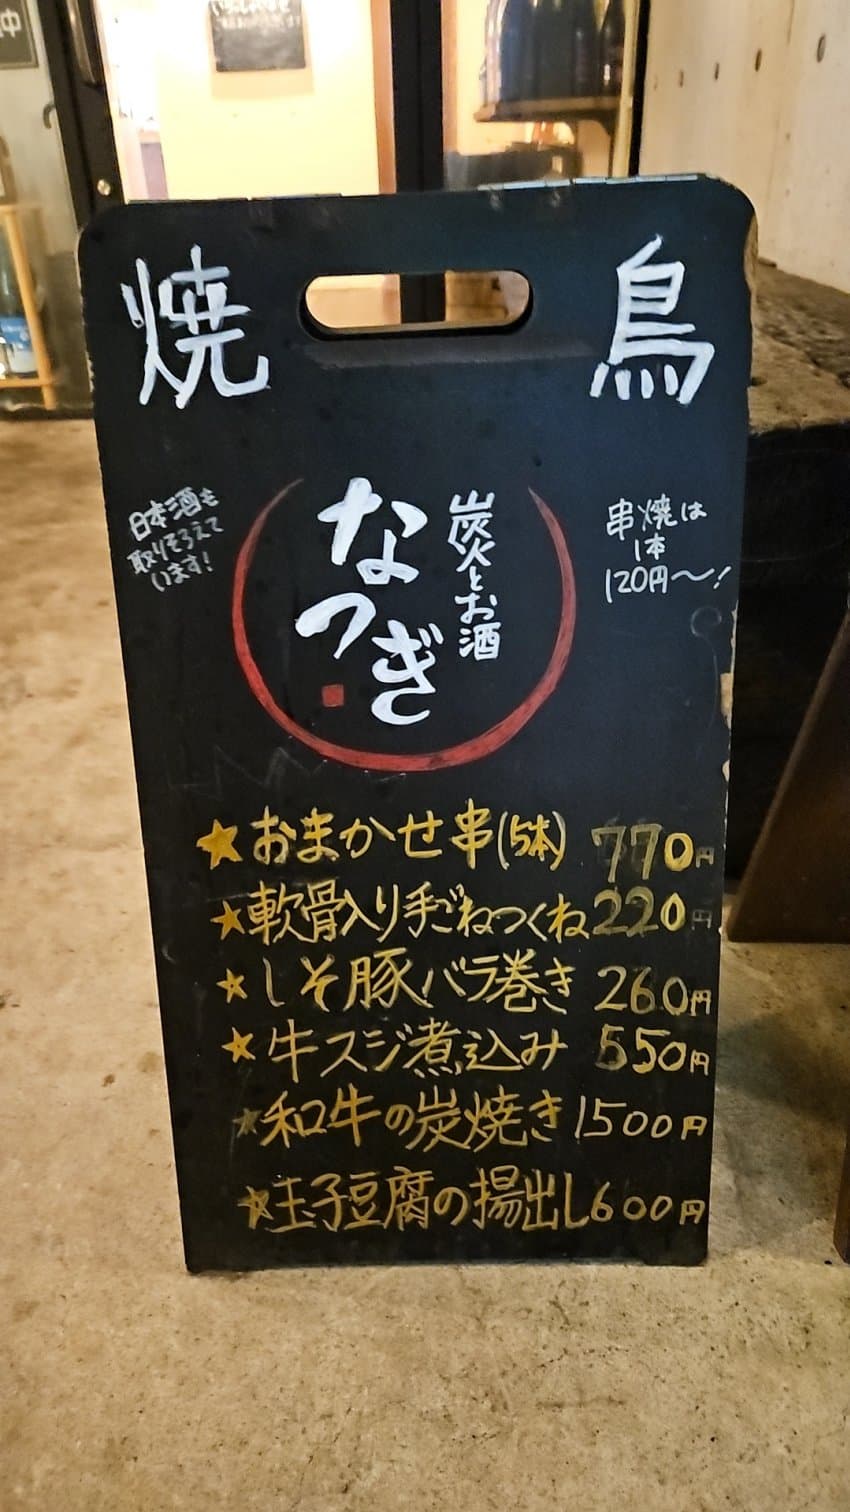 中
焼 鳥
日本酒も
取りそろえて
います!
なつぎ
炭とお酒
串焼は
1本
120円〜!
★おまかせ串(5本) 770円
★軟骨入り手ごねつくね220円
★しそ豚バラ巻き 260円
★牛スジ煮込み 550円
★和牛の炭焼き1500円
★玉子豆腐の揚出し600円